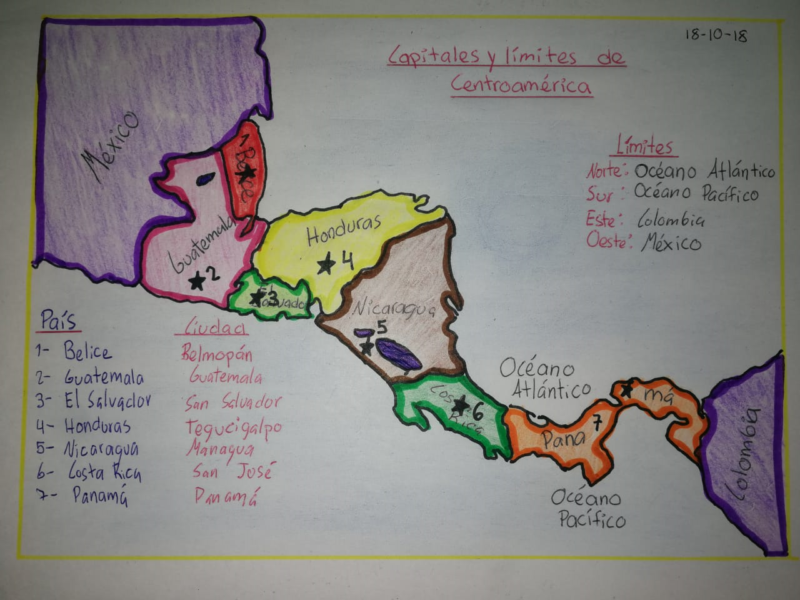 18-10-18
Capitales y límites de
Centroamérica
Límites
Norte: Océano Atlántico
Sur: Océano Pacífico
Este: Colombia
Oeste: México
México
Belice
Guatemala
2
Honduras
4
El Salvador
3
Nicaragua
5
Costa Rica
6
Océano
Atlántico
Pana 7 má
Océano
Pacífico
Colombia
País Ciudad
1- Belice Belmopán
2- Guatemala Guatemala
3- El Salvador San Salvador
4- Honduras Tegucigalpo
5- Nicaragua Managua
6- Costa Rica San José
7- Panamá Panamá